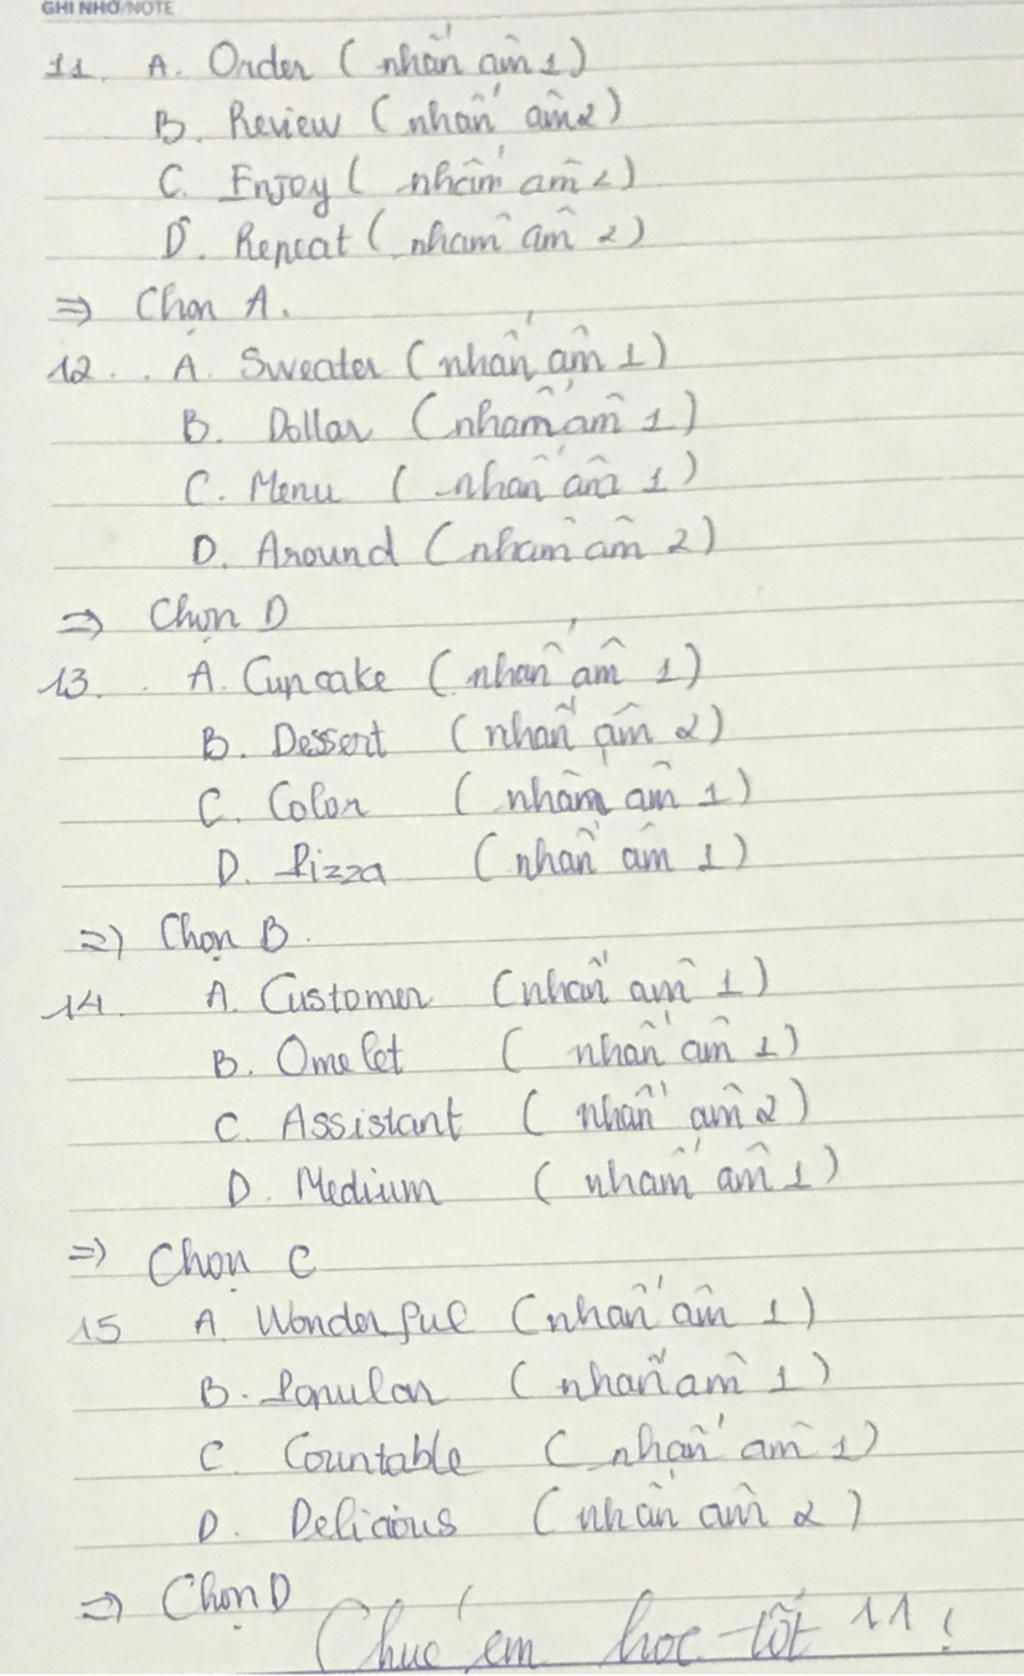 GHI NHỚ/NOTE
11. A. Order (nhấn âm 1)
B. Review (nhấn âm 2)
C. Enjoy (nhấn âm 2)
D. Repeat (nhấn âm 2)
=> Chọn A.
12. A. Sweater (nhấn âm 1)
B. Dollar (nhấn âm 1)
C. Menu (nhấn âm 1)
D. Around (nhấn âm 2)
=> Chọn D
13. A. Cupcake (nhấn âm 1)
B. Dessert (nhấn âm 2)
C. Color (nhấn âm 1)
D. Pizza (nhấn âm 1)
=> Chọn B.
14. A. Customer (nhấn âm 1)
B. Omelet (nhấn âm 1)
C. Assistant (nhấn âm 2)
D. Medium (nhấn âm 1)
=> Chọn C
15 A. Wonderful (nhấn âm 1)
B. Popular (nhấn âm 1)
C. Countable (nhấn âm 1)
D. Delicious (nhấn âm 2)
=> Chọn D
Chúc em học tốt ^^!